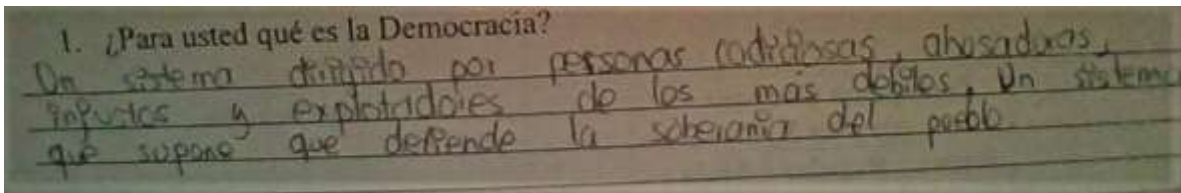 1. ¿Para usted qué es la Democracia?
Un sistema dirigido por personas codiciosas, abusadoras,
injustos y explotadores de los más debiles, Un sistema
que supone que defiende la soberania del pueblo